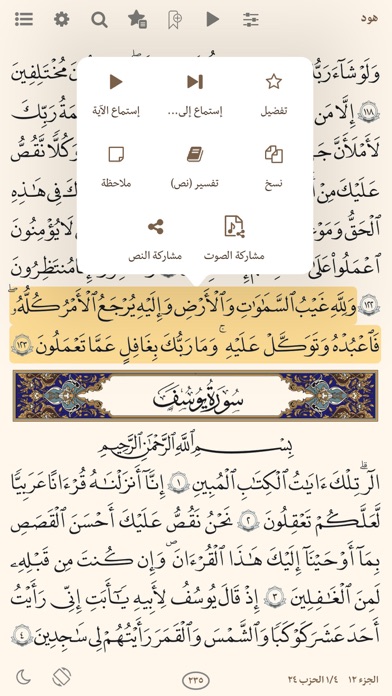 هود
وَلَوْ شَآءَ رَبُّ مُخْتَلِفِينَ
١١٨ إِلَّا مَن مَةُ رَبِّكَ
لَأَمْلَأَنَّ جَ وَكُلًّا نَّقُصُّ
عَلَيْكَ مِنْ فِى هَـٰذِهِ
ٱلْحَقُّ وَمَوْ لَا يُؤْمِنُونَ
ٱعْمَلُوا۟ عَلَىٰ إِنَّا مُنتَظِرُونَ
تفضيل
إستماع إلى...
إستماع الآية
نسخ
تفسير (نص)
ملاحظة
مشاركة الصوت
مشاركة النص
١٢٢ وَلِلَّهِ غَيْبُ ٱلسَّمَـٰوَٰتِ وَٱلْأَرْضِ وَإِلَيْهِ يُرْجَعُ ٱلْأَمْرُ كُلُّهُۥ
فَٱعْبُدْهُ وَتَوَكَّلْ عَلَيْهِ ۚ وَمَا رَبُّكَ بِغَـٰفِلٍ عَمَّا تَعْمَلُونَ ١٢٣
سُورَةُ يُوسُفَ
بِسْمِ ٱللَّهِ ٱلرَّحْمَـٰنِ ٱلرَّحِيمِ
الٓر ۚ تِلْكَ ءَايَـٰتُ ٱلْكِتَـٰبِ ٱلْمُبِينِ ١ إِنَّآ أَنزَلْنَـٰهُ قُرْءَٰنًا عَرَبِيًّا
لَّعَلَّكُمْ تَعْقِلُونَ ٢ نَحْنُ نَقُصُّ عَلَيْكَ أَحْسَنَ ٱلْقَصَصِ
بِمَآ أَوْحَيْنَآ إِلَيْكَ هَـٰذَا ٱلْقُرْءَانَ وَإِن كُنتَ مِن قَبْلِهِۦ
لَمِنَ ٱلْغَـٰفِلِينَ ٣ إِذْ قَالَ يُوسُفُ لِأَبِيهِ يَـٰٓأَبَتِ إِنِّى رَأَيْتُ
أَحَدَ عَشَرَ كَوْكَبًا وَٱلشَّمْسَ وَٱلْقَمَرَ رَأَيْتُهُمْ لِى سَـٰجِدِينَ ٤
الجزء ١٢ ١/٤ الحزب ٢٤
٢٣٥